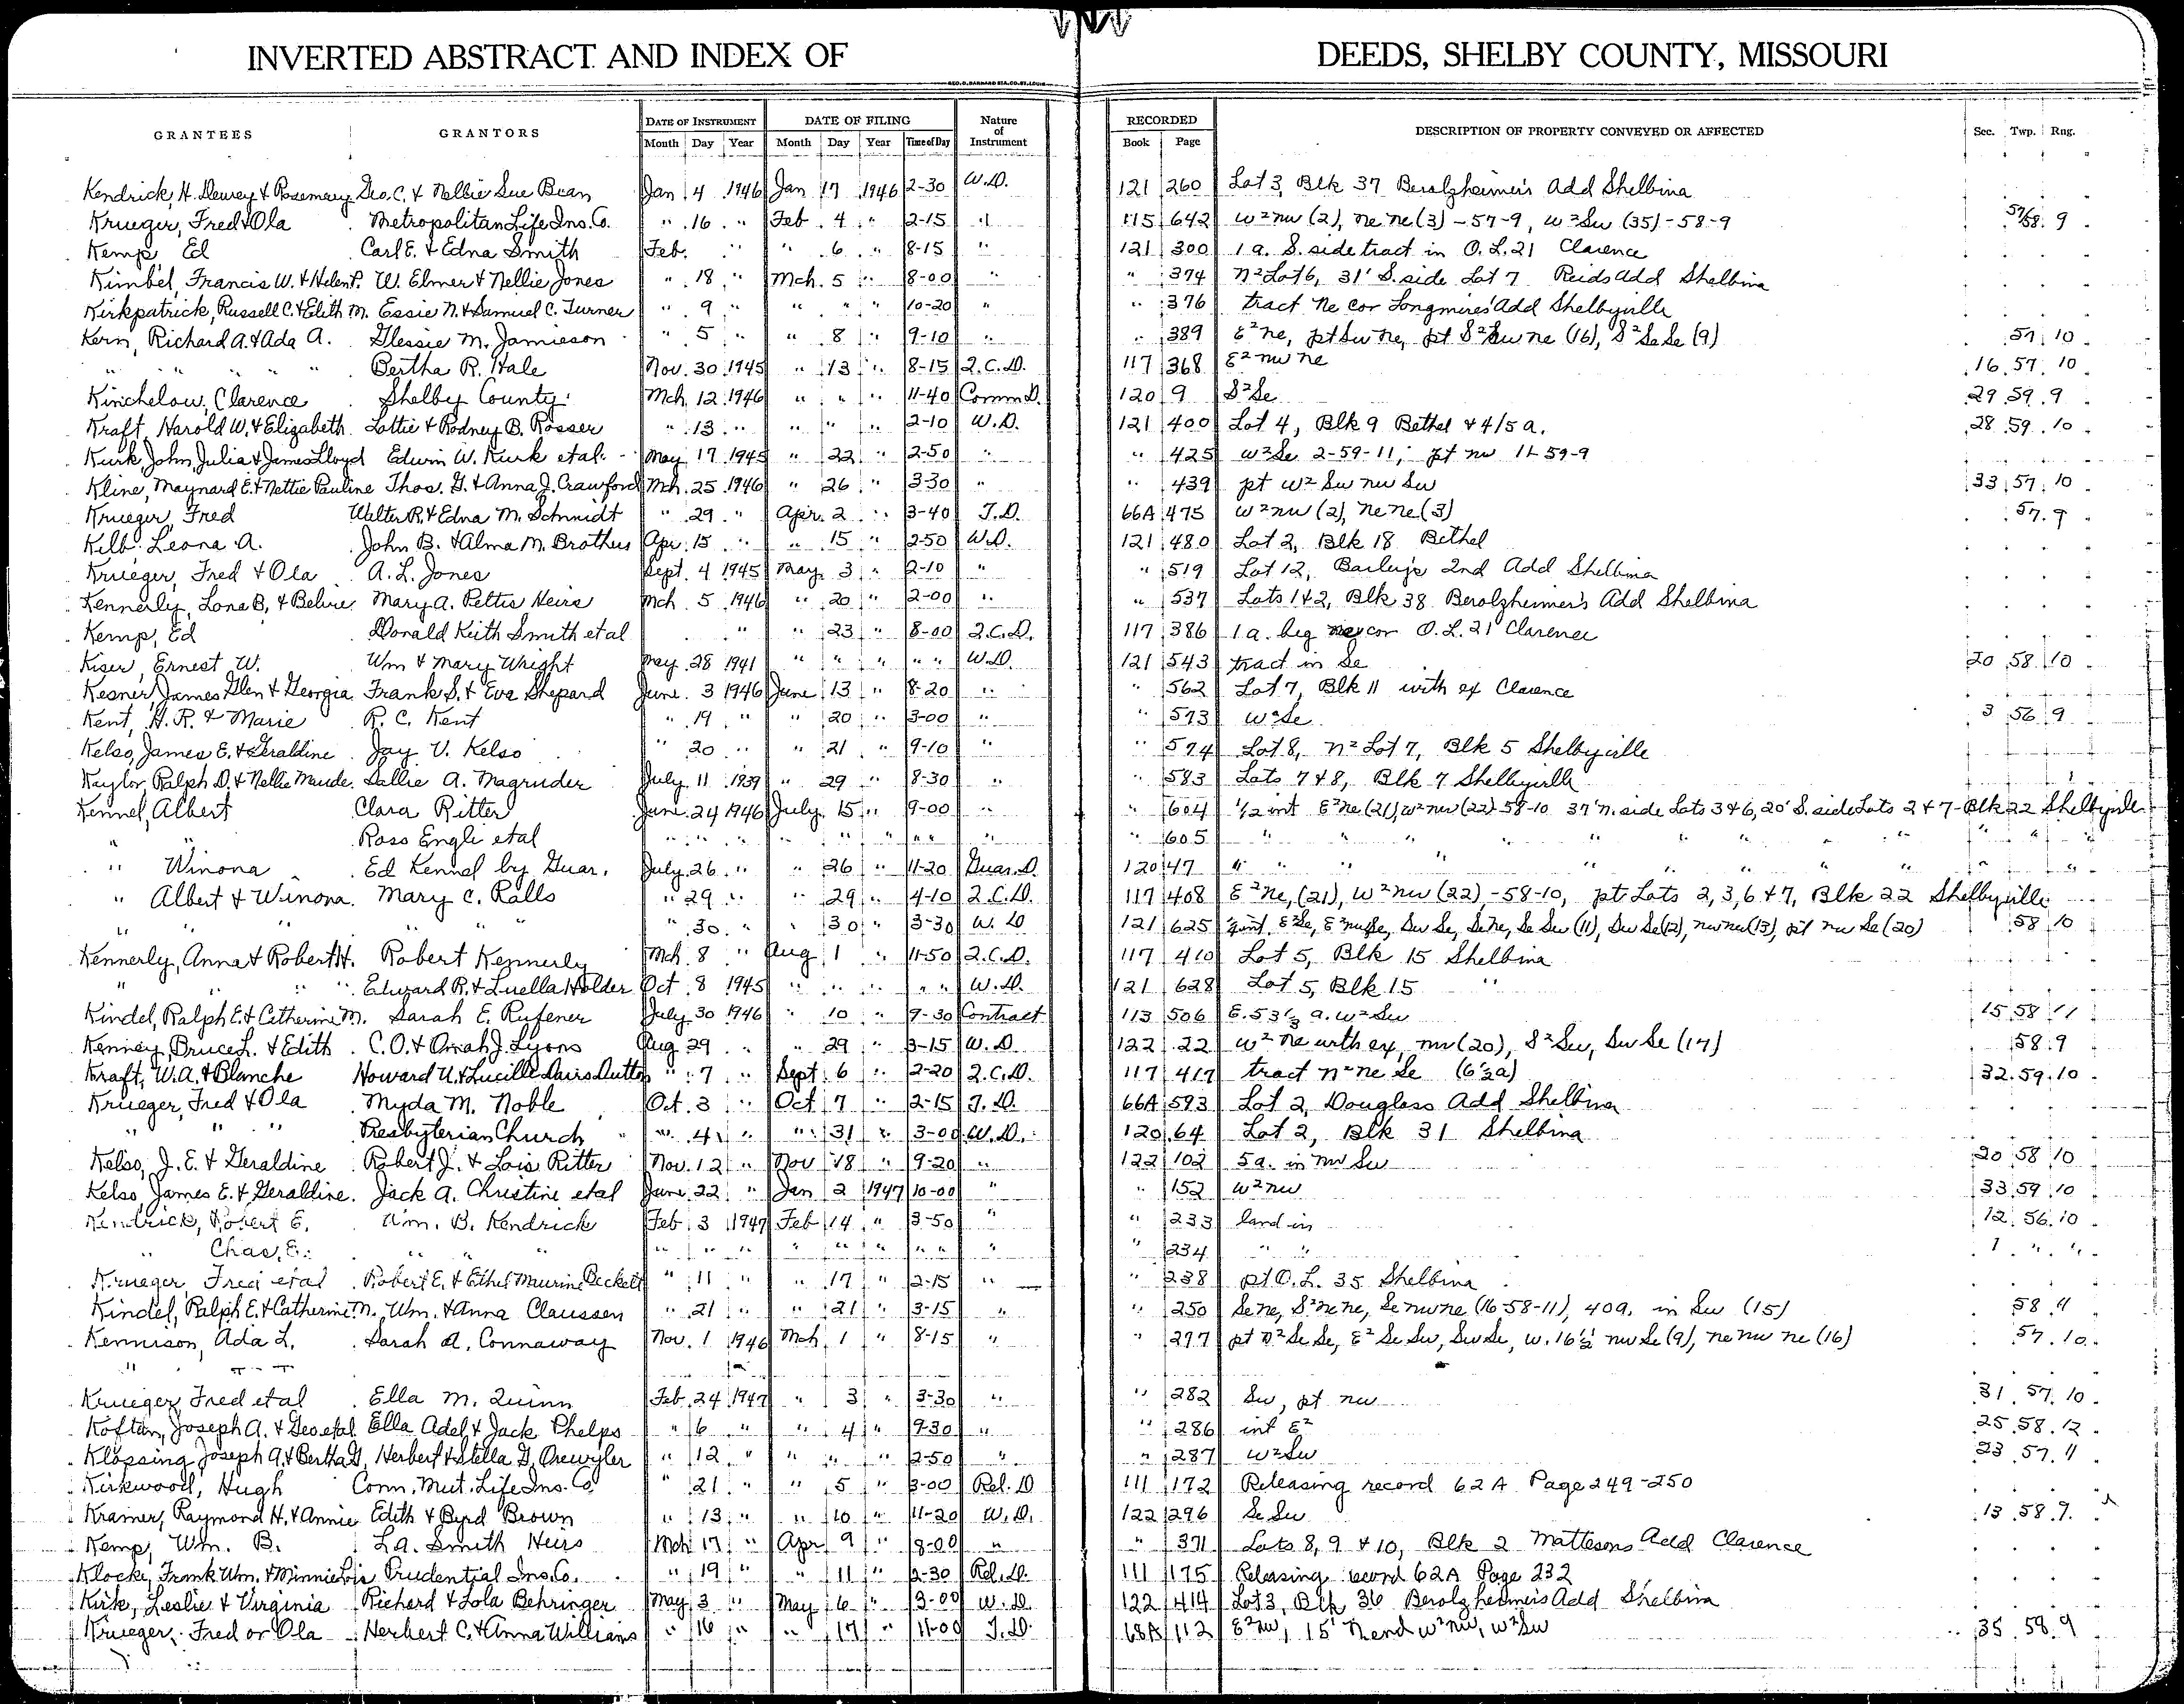 INVERTED ABSTRACT AND INDEX OF DEEDS, SHELBY COUNTY, MISSOURI
GRANTEES GRANTORS DATE OF INSTRUMENT DATE OF FILING Nature of Instrument RECORDED DESCRIPTION OF PROPERTY CONVEYED OR AFFECTED Sec. Twp. Rng.
Month Day Year Month Day Year Time of Day Book Page
Kendrick, H. Dewey & Rosemary Geo. C. & Nellie Sue Bean Jan 4 1946 Jan 17 1946 2-30 W.D. 121 260 Lot 3, Blk 37 Berolzheimer's Add Shelbina
Krueger, Fred & Ola Metropolitan Life Ins. Co. " 16 " Feb 4 " 2-15 " 115 642 W²nw (2), ne ne (3) - 57-9, W²Sw (35) - 58-9 57/58 9
Kemp, Ed Carl E. & Edna Smith Feb. " " 6 " 8-15 " 121 300 1 a. S. side tract in O.L. 21 Clarence
Kimbel, Francis W. & Helen P. W. Elmer & Nellie Jones " 18 " Mch. 5 " 8-00 " " 374 N²Lot 6, 31' S. side Lot 7 Reids Add Shelbina
Kirkpatrick, Russell C. & Edith M. Essie N. & Samuel C. Turner " 9 " " " " 10-20 " " 376 tract ne cor Longmires' Add Shelbyville
Kern, Richard A. & Ada A. Glessie M. Jamieson " 5 " " 8 " 9-10 " " 389 E²ne, pt Sw ne, pt S²nw ne (16), S²Se Se (9) 57 10
" " " " " Bertha R. Hale Nov. 30 1945 " 13 " 8-15 Q.C.D. 117 368 E² nw ne 16 57 10
Kinchelow, Clarence Shelby County Mch. 12 1946 " " " 11-40 Comm D. 120 9 S²Se 29 59 9
Kraft, Harold W. & Elizabeth Lottie & Rodney B. Rosser " 13 " " " " 2-10 W.D. 121 400 Lot 4, Blk 9 Bethel & 4/5 a. 28 59 10
Kurk, John, Julia & James Lloyd Edwin W. Kurk et al. May 17 1945 " 22 " 2-50 " " 425 W²Se 2-59-11, pt nw 11-59-9
Kline, Maynard E. & Nettie Pauline Thos. G. & Anna J. Crawford Mch. 25 1946 " 26 " 3-30 " " 439 pt W² Sw nw Sw 33 57 10
Krueger, Fred Walter R. & Edna M. Schmidt " 29 " Apr. 2 " 3-40 T.D. 66A 475 W²nw (2), ne ne (3) 57 9
Kilb, Leona A. John B. & Alma M. Brothers Apr. 15 " " 15 " 2-50 W.D. 121 480 Lot 2, Blk 18 Bethel
Krueger, Fred & Ola A. L. Jones Sept. 4 1945 May 3 " 2-10 " " 519 Lot 12, Bailey's 2nd Add Shelbina
Kennerly, Lona B. & Mary A. Peltis Heirs Mch 5 1946 " 20 " 2-00 " " 537 Lots 1 & 2, Blk 38 Berolzheimer's Add Shelbina
Kemp, Ed Donald Keith Smith et al " " 23 " 8-00 Q.C.D. 117 386 1 a. beg cor O.L. 21 Clarence
Kiser, Ernest W. Wm & Mary Wright May 28 1941 " " " " " W.D. 121 543 tract in Se 20 58 10
Kesner, James Glen & Georgia Frank S. & Eva Shepard June 3 1946 June 13 " 8-20 " " 562 Lot 7, Blk 11 with ex Clarence
Kent, H. R. & Marie R. C. Kent " 19 " " 20 " 3-00 " " 573 W²Se 3 56 9
Kelso, James E. & Geraldine Jay V. Kelso " 20 " " 21 " 9-10 " " 574 Lot 8, N² Lot 7, Blk 5 Shelbyville
Kaylor, Ralph D. & Nellie Maude Sallie A. Magruder July 11 1939 " 29 " 8-30 " " 583 Lots 7 & 8, Blk 7 Shelbyville
Kennel, Albert Clara Ritter June 24 1946 July 15 " 9-00 " " 604 1/2 int E²ne (21), W²nw (22) 58-10 37' N. side Lots 3 & 6, 20' S. side Lots 2 & 7 - Blk 22 Shelbyville
" Ross Engli et al " " " " " " " " " " 605 " " " " " " " "
" Winona Ed Kennel by Guar. July 26 " " 26 " 11-20 Guar. D. 120 47 " " " " " " " "
" Albert & Winona Mary C. Ralls " 29 " " 29 " 4-10 Q.C.D. 117 408 E²ne, (21), W²nw (22) - 58-10, pt Lots 2, 3, 6 & 7, Blk 22 Shelbyville
" " " " " " " 30 " " 30 " 3-30 W.D 121 625 int. E²Se, E²nwSe, Sw Se, Se ne, Se Sw (11), Sw Se (12), nw nw (13), pt nw Se (20) 58 10
Kennerly, Anna & Robert H. Robert Kennerly Mch 8 " Aug 1 " 11-50 Q.C.D. 117 410 Lot 5, Blk 15 Shelbina
" " " Edward R. & Luella Holder Oct 8 1945 " " " " " W.D. 121 628 Lot 5, Blk 15 "
Kindel, Ralph E. & Catherine M. Sarah E. Rufener July 30 1946 " 10 " 9-30 Contract 113 506 E. 53 1/3 a. W²Sw 15 58 11
Kenney, Bruce L. & Edith C. O. & Orrah J. Lyons Aug 29 " " 29 " 3-15 W.D. 122 22 W² ne with ex, nw (20), S²Sw, Sw Se (17) 58 9
Kraft, W. A. & Blanche Howard U. & Lucille Davis Dutton " 7 " Sept. 6 " 2-20 Q.C.D. 117 417 tract N²ne Se (6½a) 32 59 10
Krueger, Fred & Ola Myda M. Noble Oct. 3 " Oct 7 " 2-15 T.D. 66A 593 Lot 2, Douglass Add Shelbina
" " " Presbyterian Church " 4 " " 31 " 3-00 W.D. 120 64 Lot 2, Blk 31 Shelbina
Kelso, J. E. & Geraldine Robert J. & Lois Ritter Nov. 12 " Nov 18 " 9-20 " 122 102 5a. in nw Sw 20 58 10
Kelso, James E. & Geraldine Jack A. Christine et al June 22 " Jan 2 1947 10-00 " " 152 W²nw 33 59 10
Kendrick, Robert E. Wm. B. Kendrick Feb 3 1947 Feb 14 " 3-50 " " 233 land in 12 56 10
" Chas. E. " " " " " " " " " " " " " 234 " " 1 " "
Krueger, Fred et al Robert E. & Ethel Maurine Beckett " 11 " " 17 " 2-15 " " 238 pt O.L. 35 Shelbina
Kindel, Ralph E. & Catherine M. Wm. & Anna Claussen " 21 " " 21 " 3-15 " " 250 Se ne, S²ne ne, Se nw ne (16-58-11), 40a. in Sw (15) 58 11
Kennison, Ada L. Sarah A. Connaway Nov. 1 1946 Mch 1 " 8-15 " " 277 pt N²Se Se, E² Se Sw, Sw Se, W. 16½' nw Se (9), ne nw ne (16) 57 10
"
Krueger, Fred et al Ella M. Quinn Feb. 24 1947 " 3 " 3-30 " " 282 Sw, pt nw 31 57 10
Koftan, Joseph A. & Geo et al Ella Adel & Jack Phelps " 6 " " 4 " 9-30 " " 286 int E² 25 58 12
Klossing, Joseph A. & Bertha G. Herbert & Stella G. Drewyler " 12 " " " " 2-50 " " 287 W²Sw 23 57 11
Kirkwood, Hugh Conn. Mut. Life Ins. Co. " 21 " " 5 " 3-00 Rel. D 111 172 Releasing record 62A Page 249-250
Kramer, Raymond H. & Annie Edith & Byrd Brown " 13 " " 10 " 11-20 W.D. 122 296 Se Sw 13 58 9
Kemp, Wm. B. L. A. Smith Heirs Mch 17 " Apr 9 " 8-00 " " 371 Lots 8, 9 & 10, Blk 2 Mattesons Add Clarence
Klocke, Frank Wm. & Minnie Prudential Ins. Co. " 19 " " 11 " 2-30 Rel. D. 111 175 Releasing record 62A Page 232
Kirk, Leslie & Virginia Richard & Lola Behringer May 3 " May 6 " 3-00 W.D. 122 414 Lot 3, Blk 36 Berolzheimer's Add Shelbina
Krueger, Fred or Ola Herbert C. & Anna Williams " 16 " " 17 " 11-00 T.D. 68A 112 E²nw, 15' N end W²nw, W²Sw 35 58 9